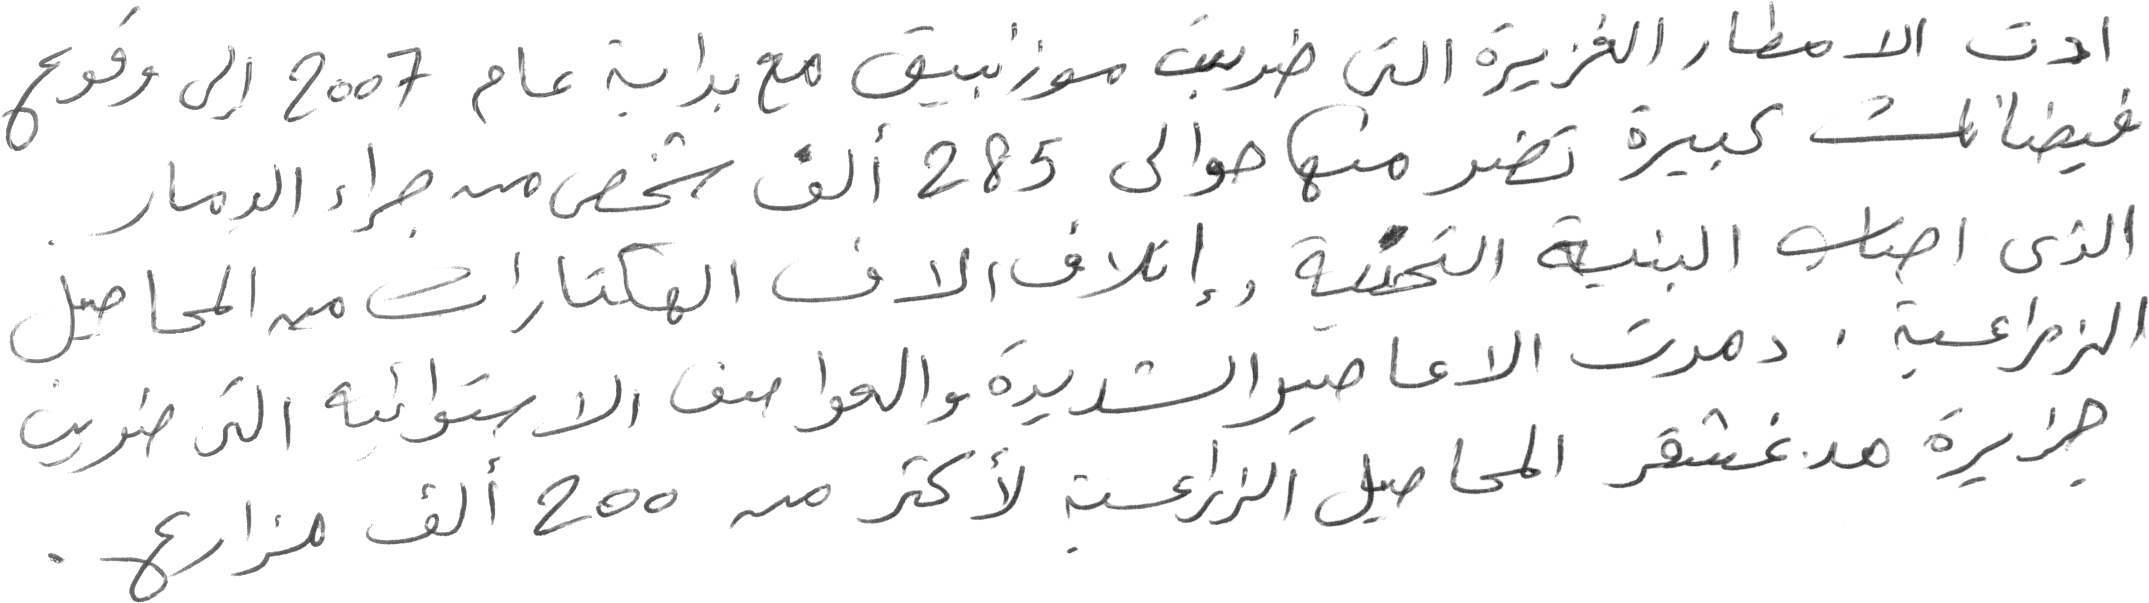 ادت الامطار الغزيرة التى ضربت موزنبيق مع بداية عام 2007 إلى وقوع
فيضانات كبيرة تضرر منها حوالى 285 ألف شخص من جراء الدمار
الذى اصاب البنية التحتية وإتلاف الاف الهكتارات من المحاصيل
الزراعية . دمرت الاعاصير الشديدة والعواصف الاستوائية التى ضربت
جزيرة مدغشقر المحاصيل الزراعية لأكثر من 200 ألف مزارع .